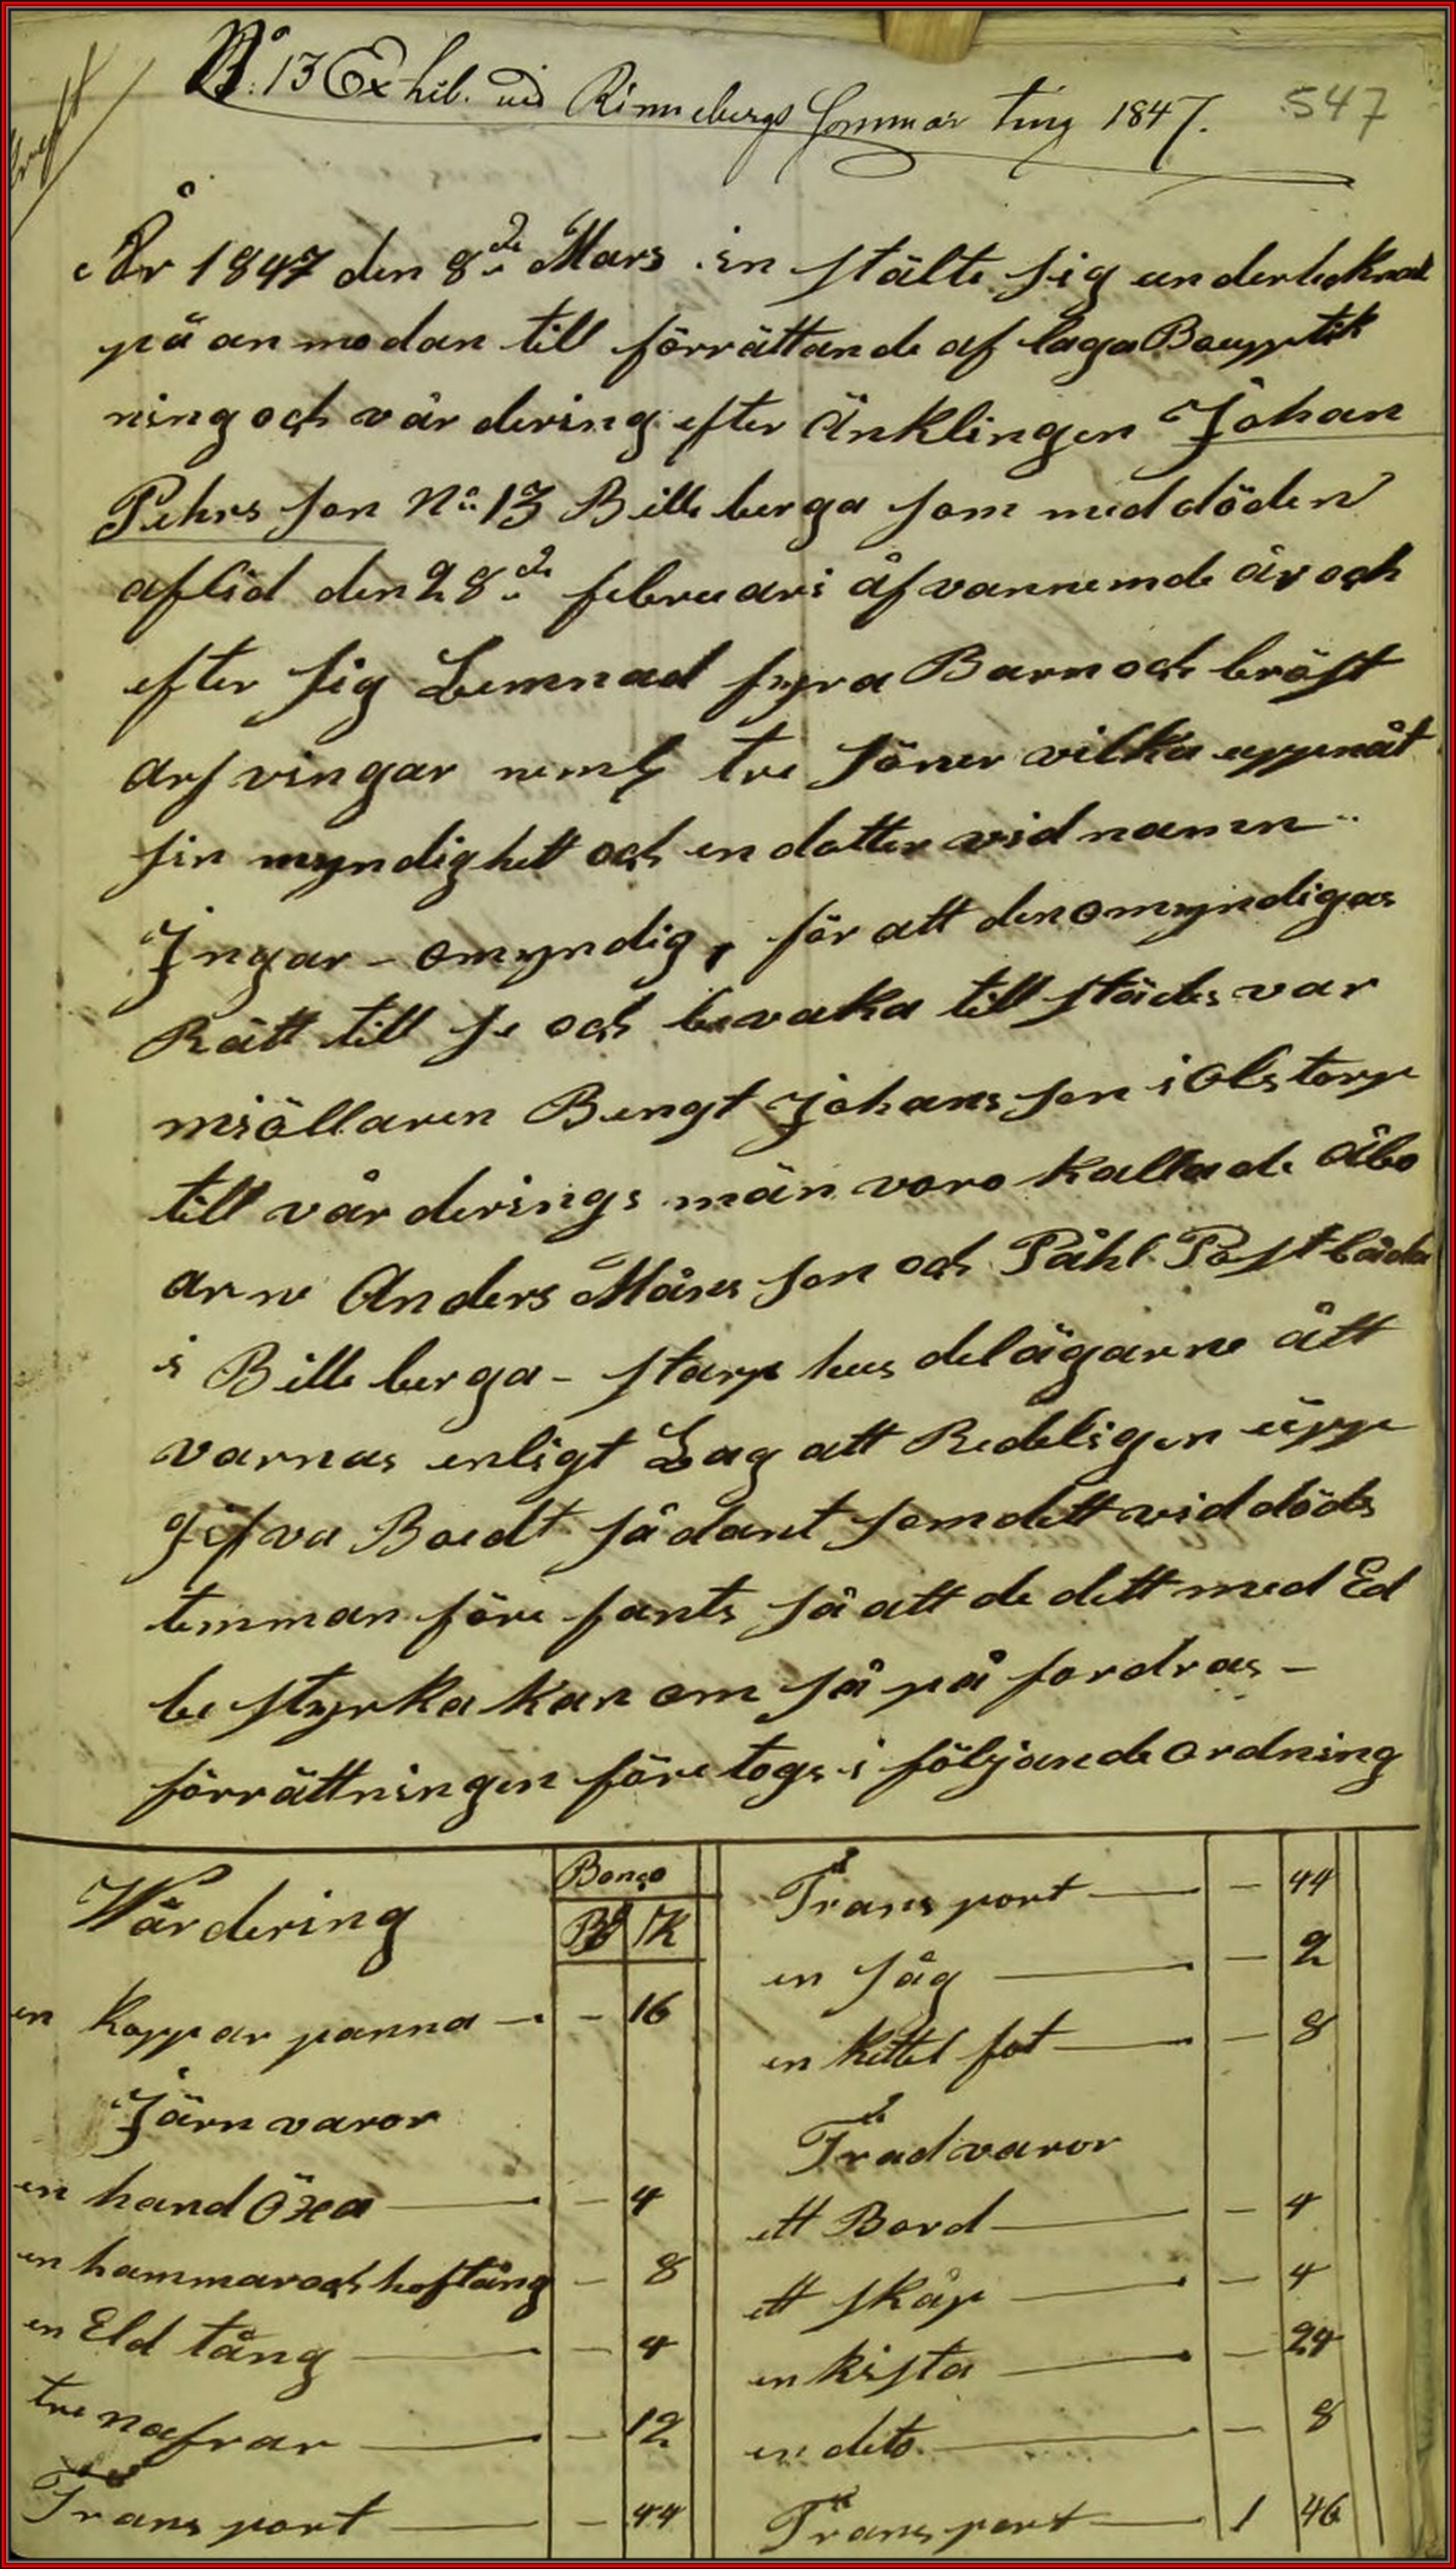 N° 13 Exhib. vid Rönnebergs Sommar ting 1847.
547
År 1847 den 8de Mars in stälte sig undertecknad
på an modan till förrättande af laga Bouppték
ning och vär dering efter Änklingen Johan
Pehrs son No 13 Bille berga som med döden
aflid den 28de februari åfvannemde år och
efter sig Lemnad fyra Barn och bröst
arfvingar neml tre söner vilka uppenåt
sin myndighett och en dotter vid namn
Ingar - omyndig, för att den omyndigas
Rätt till se och bevaka till städes var
miöllaren Bengt Johans son i Ols torp
till vär derings män voro kallade Åbo
arne Anders Måns son och Påhl Post båda
i Bille berga - starp hus delägarne ått
varnas enligt Lag att Redeligen upp
gifva Boedt sådant som dett vid döds
temman före fants så att de dett med Ed
be styrka kan om så på fordras -
förrättningen före togs i följande ordning
Värdering Banco
Rd K
en koppar panna - 16
Järn varor
en hand Öxa - 4
en hammar och hoftång - 8
en Eld tång - 4
tre nafrar - 12
Trans port - 44
Trans port - 44
en såg - 2
en kettel fot - 8
Träd varor
ett Bord - 4
ett skåp - 4
en kista - 24
en dito - 8
Trans port 1 46